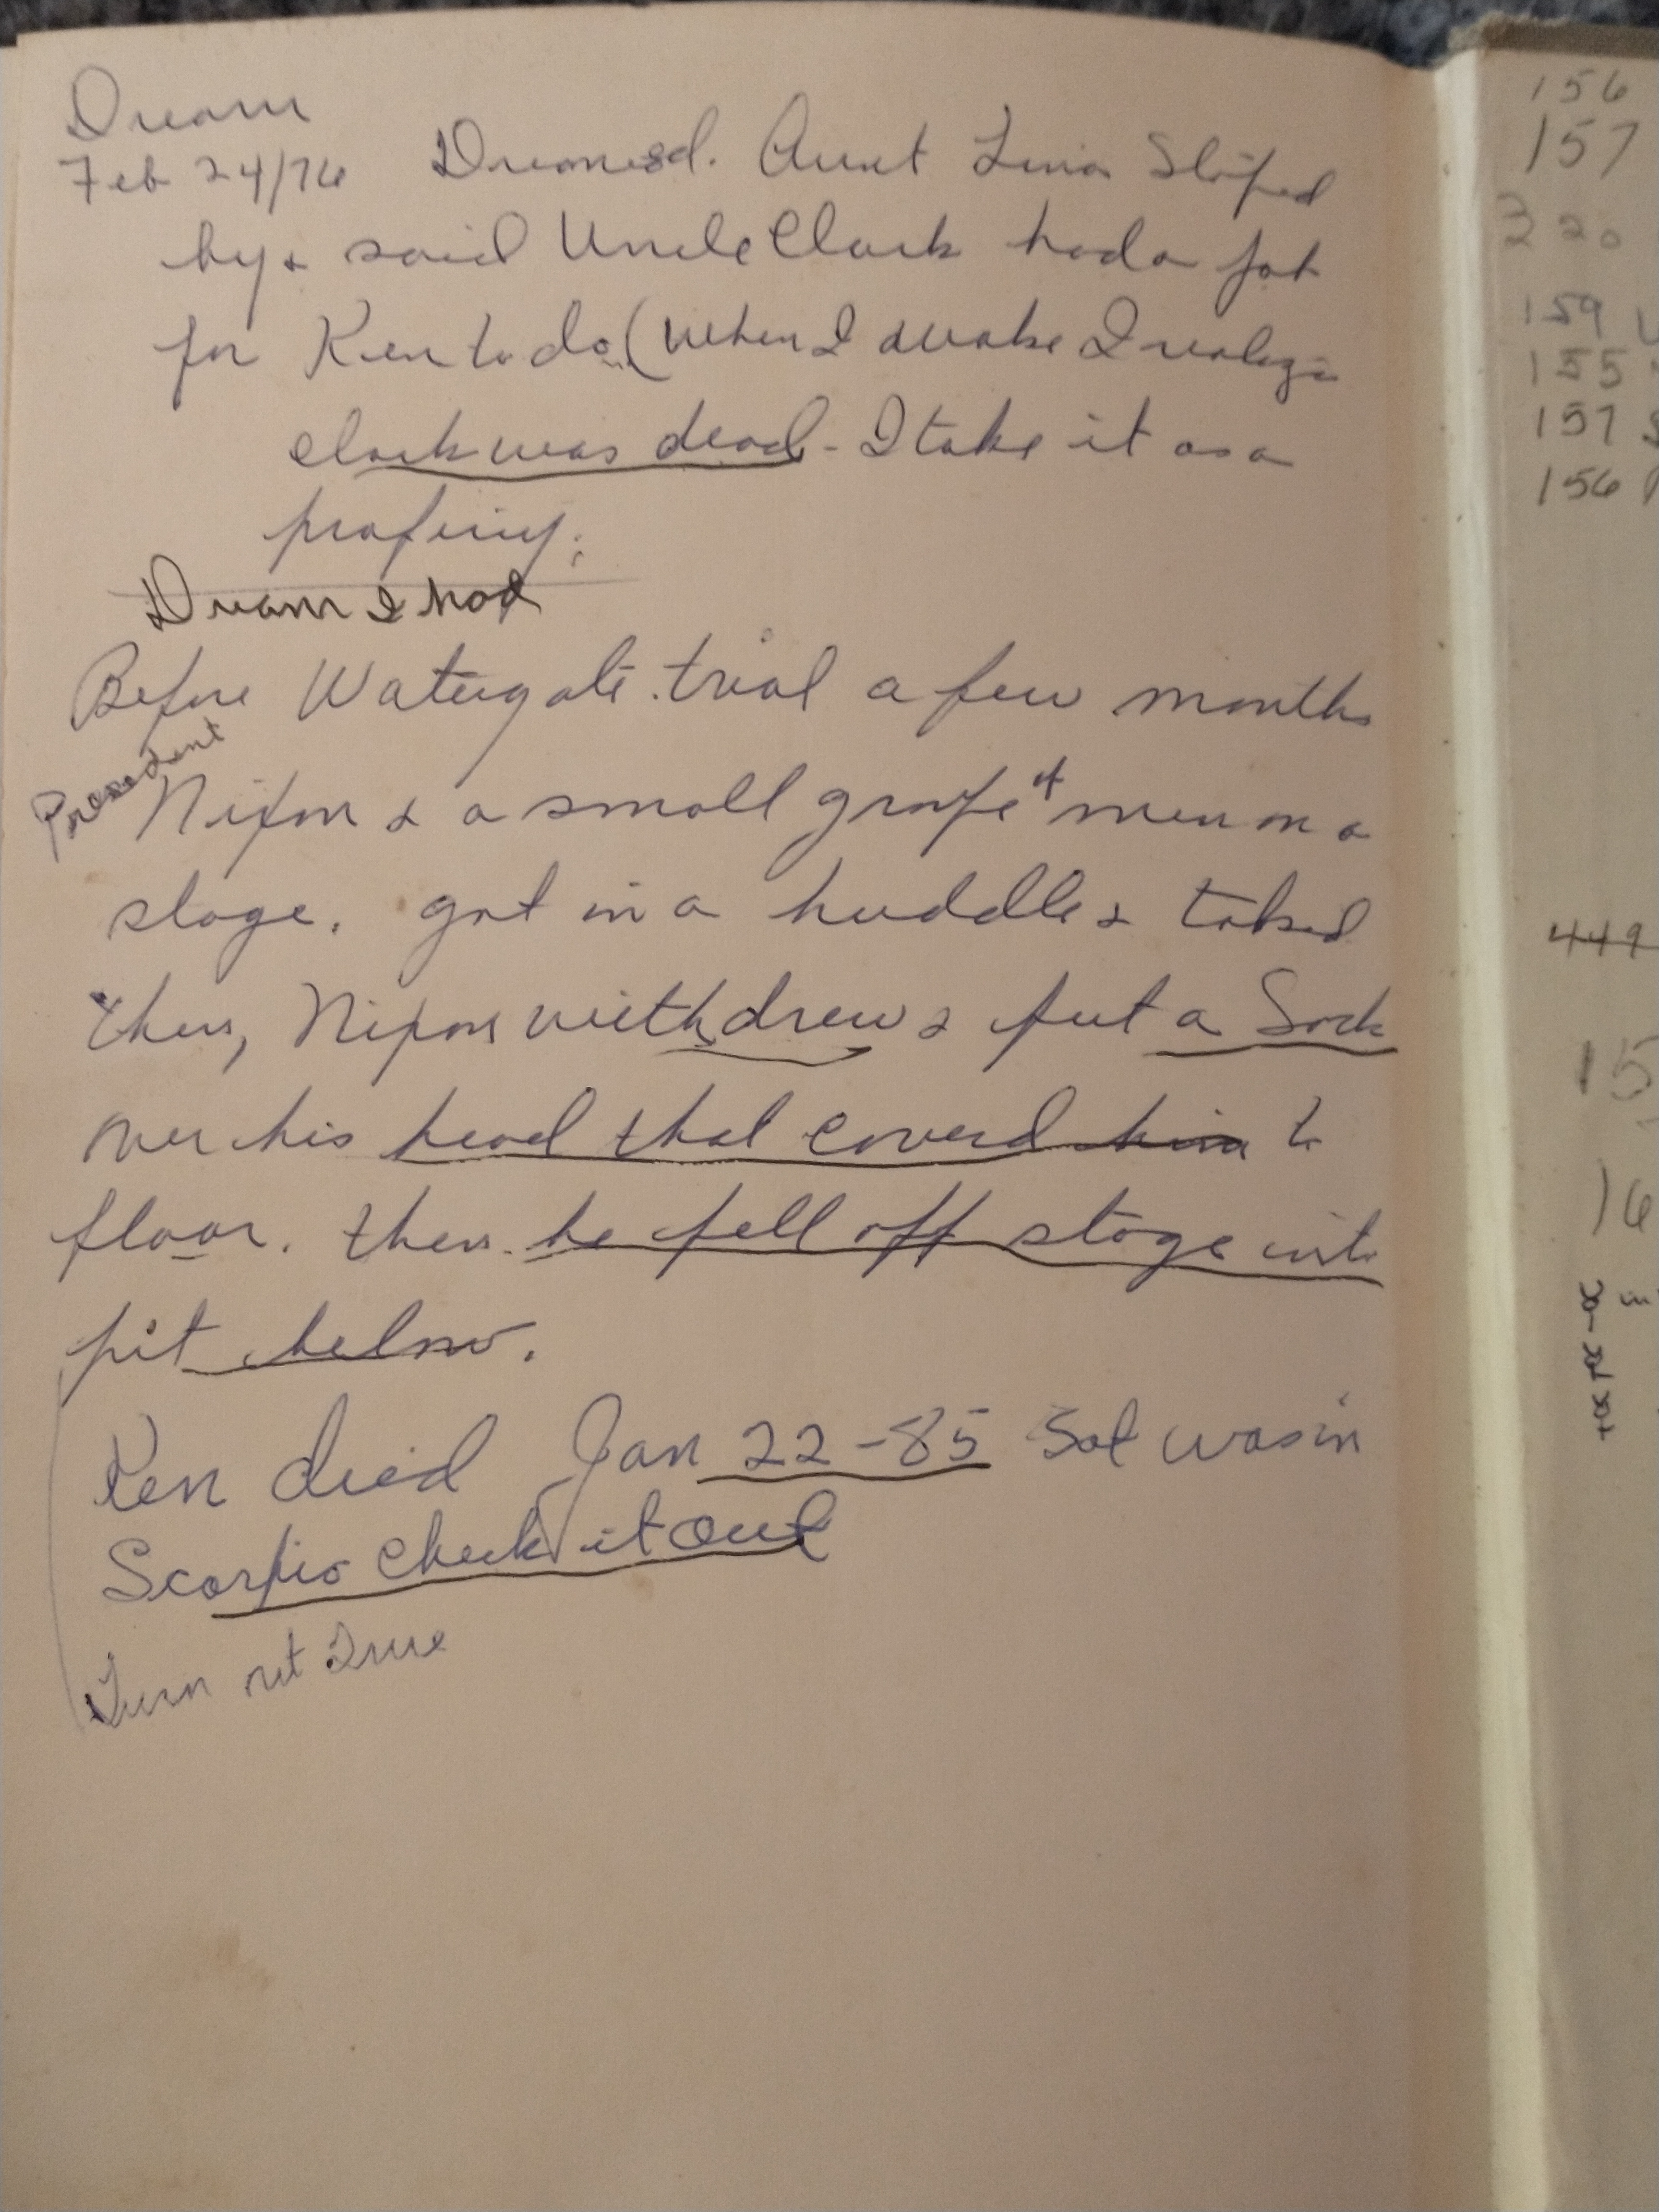 Dream
Feb 24/76 Dreamed. Aunt Lina Stoped
by & said Uncle Clark had a job
for Ken to do. (when I awoke I realize
Clark was dead - I take it as a
proficy.
Dream I had
Before Watergate trial a few months
President
Nixon & a small groupe of men on a
stage. got in a huddle & talked
then, Nixon withdrew & put a Sock
over his head that coverd him to
floor. then he fell off stage into
pit below.
Ken died Jan 22-85 Sat was in
Scorpio Check it Out
Turn out True
156
157
320
159
155
157
156
449
15
16